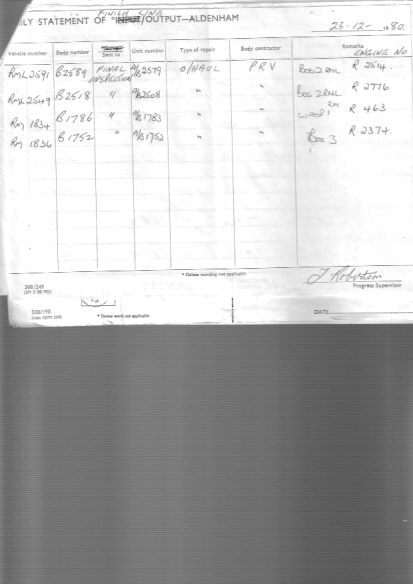 FINISH LINE
LY STATEMENT OF INPUT/OUTPUT—ALDENHAM 23-12- 1980
Vehicle number Body number Sent in Unit number Type of repair Body contractor Remarks ENGINE NO
RML 2591 B2589 FINAL INSPECTION A/B2579 O/HAUL PRV BOG 2 RML R 2514
RML 2549 B2518 " A/B2508 " " BOG 2 RML R 2776
RM 1834 B1786 " A/B1783 " " RM R 463
RM 1836 B1752 " A/B1752 " " BOG 3 R 2374.
* Delete wording not applicable
J Robertson
Progress Supervisor
308/249
308/198
* Delete word not applicable
DATE